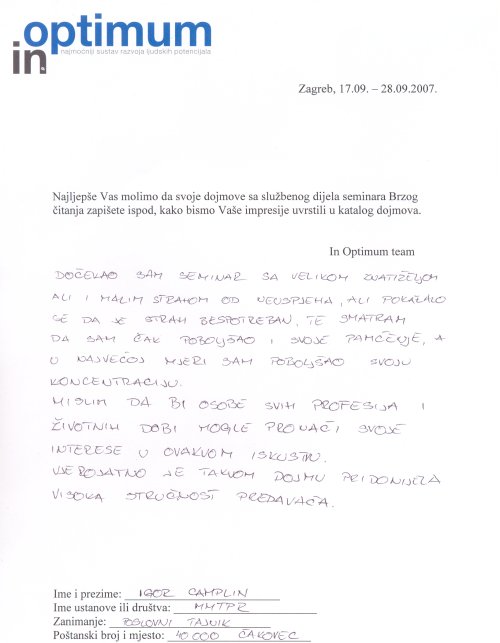 in optimum
najmoćniji sustav razvoja ljudskih potencijala
Zagreb, 17.09. – 28.09.2007.
Najljepše Vas molimo da svoje dojmove sa službenog dijela seminara Brzog
čitanja zapišete ispod, kako bismo Vaše impresije uvrstili u katalog dojmova.
In Optimum team
DOČEKAO SAM SEMINAR SA VELIKOM ZNATIŽELJOM
ALI I MALIM STRAHOM OD NEUSPJEHA, ALI POKAZALO
SE DA JE STRAH BESPOTREBAN, TE SMATRAM
DA SAM ČAK POBOLJŠAO I SVOJE PAMĆENJE, A
U NAJVEĆOJ MJERI SAM POBOLJŠAO SVOJU
KONCENTRACIJU.
MISLIM DA BI OSOBE SVIH PROFESIJA I
ŽIVOTNIH DOBI MOGLE PRONAĆI SVOJE
INTERESE U OVAKVOM ISKUSTVU.
VJEROJATNO JE TAKVOM DOJMU PRIDONIJELA
VISOKA STRUČNOST PREDAVAČA.
Ime i prezime: IGOR CAMPLIN
Ime ustanove ili društva: MMTPR
Zanimanje: POSLOVNI TAJNIK
Poštanski broj i mjesto: 40 000 ČAKOVEC